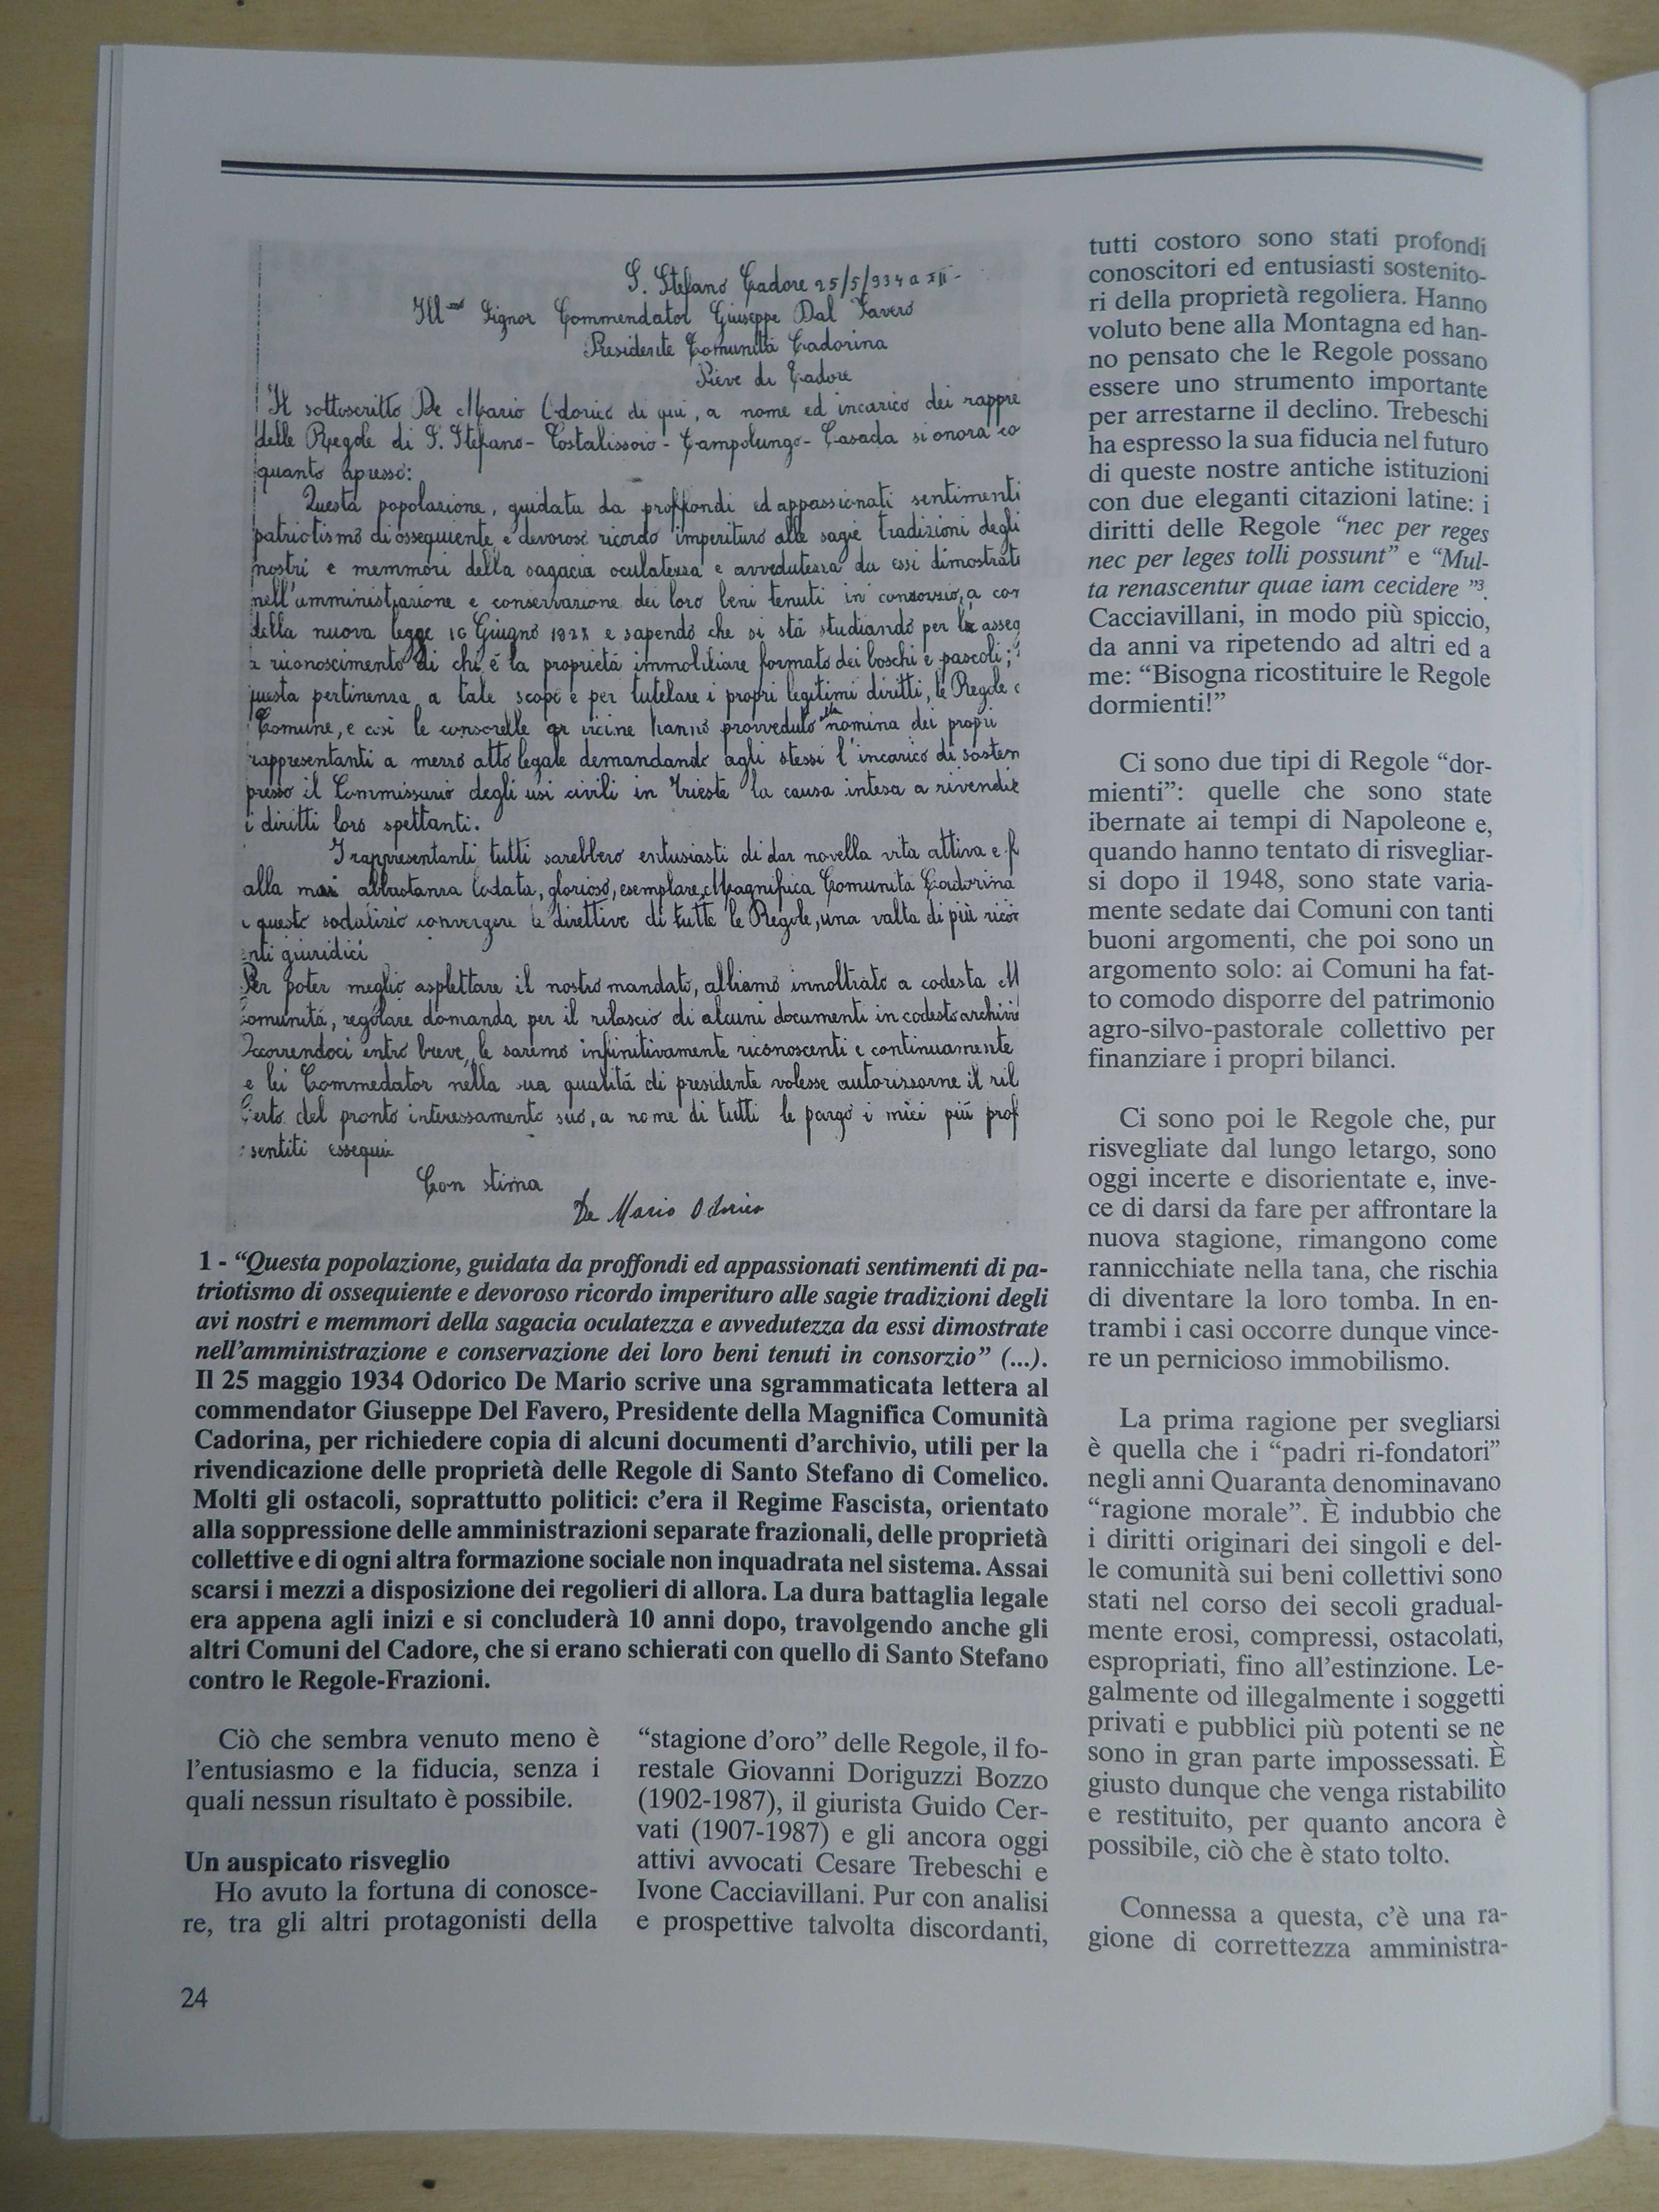 S. Stefano Cadore 25/5/934 a XII-
Ill mo Signor Commendator Giuseppe Dal Favero
Presidente Comunità Cadorina
Pieve di Cadore
Il sottoscritto De Mario Odorico di qui, a nome ed incarico dei rappre
delle Regole di S. Stefano - Costalissoio - Campolungo - Casada si onora co
quanto apresso:
Questa popolazione, guidata da proffondi ed appassionati sentimenti
patriotismo di ossequiente e devoroso ricordo imperituro alle sagie tradizioni degli
nostri e memmori della sagacia oculatezza e avvedutezza da essi dimostrate
nell'amministrazione e conservazione dei loro beni tenuti in consorzio, a con
della nuova legge 16 Giugno 192 e sapendo che si stá studiando per la asseg
riconoscimento di chi é la proprietá immobiliare formato dei boschi e pascoli;
questa pertinenza a tale scopo e per tutelare i propri legitimi diritti, le Regole
Comune, e cosi le consorelle vicine hanno provveduto alla nomina dei propri
rappresentanti a mezzo atto legale demandando agli stessi l'incarico di sosten
presso il Commissario degli usi civili in Trieste la causa intesa a rivendic
i diritti loro spettanti.
I rappresentanti tutti sarebbero entusiasti di dar novella vita attiva e f
alla mai abbastanza lodata, glorioso, esemplare, Magnifica Comunita Cadorina
questo sodalizio convergere le direttive di tutte le Regole, una valta di più ricon
nti giuridici
Per poter meglio asplettare il nostro mandato, abbiamo innoltrato a codesta M
Comunitá, regolare domanda per il rilascio di alcuni documenti in codesto archivio
Occorrendoci entro breve, le saremo infinitivamente riconoscenti e continuamente
e lei Commedator nella sua qualitá di presidente volesse autorizzarne il ril
Certo del pronto interessamento suo, a nome di tutti le porgo i miei più prof
sentiti ossequi
Con stima
De Mario Odorico
1 - “Questa popolazione, guidata da proffondi ed appassionati sentimenti di pa-
triotismo di ossequiente e devoroso ricordo imperituro alle sagie tradizioni degli
avi nostri e memmori della sagacia oculatezza e avvedutezza da essi dimostrate
nell’amministrazione e conservazione dei loro beni tenuti in consorzio” (...).
Il 25 maggio 1934 Odorico De Mario scrive una sgrammaticata lettera al
commendator Giuseppe Del Favero, Presidente della Magnifica Comunità
Cadorina, per richiedere copia di alcuni documenti d’archivio, utili per la
rivendicazione delle proprietà delle Regole di Santo Stefano di Comelico.
Molti gli ostacoli, soprattutto politici: c’era il Regime Fascista, orientato
alla soppressione delle amministrazioni separate frazionali, delle proprietà
collettive e di ogni altra formazione sociale non inquadrata nel sistema. Assai
scarsi i mezzi a disposizione dei regolieri di allora. La dura battaglia legale
era appena agli inizi e si concluderà 10 anni dopo, travolgendo anche gli
altri Comuni del Cadore, che si erano schierati con quello di Santo Stefano
contro le Regole-Frazioni.
Ciò che sembra venuto meno è
l’entusiasmo e la fiducia, senza i
quali nessun risultato è possibile.
Un auspicato risveglio
Ho avuto la fortuna di conosce-
re, tra gli altri protagonisti della
“stagione d’oro” delle Regole, il fo-
restale Giovanni Doriguzzi Bozzo
(1902-1987), il giurista Guido Cer-
vati (1907-1987) e gli ancora oggi
attivi avvocati Cesare Trebeschi e
Ivone Cacciavillani. Pur con analisi
e prospettive talvolta discordanti,
tutti costoro sono stati profondi
conoscitori ed entusiasti sostenito-
ri della proprietà regoliera. Hanno
voluto bene alla Montagna ed han-
no pensato che le Regole possano
essere uno strumento importante
per arrestarne il declino. Trebeschi
ha espresso la sua fiducia nel futuro
di queste nostre antiche istituzioni
con due eleganti citazioni latine: i
diritti delle Regole “nec per reges
nec per leges tolli possunt” e “Mul-
ta renascentur quae iam cecidere ”³.
Cacciavillani, in modo più spiccio,
da anni va ripetendo ad altri ed a
me: “Bisogna ricostituire le Regole
dormienti!”
Ci sono due tipi di Regole “dor-
mienti”: quelle che sono state
ibernate ai tempi di Napoleone e,
quando hanno tentato di risvegliar-
si dopo il 1948, sono state varia-
mente sedate dai Comuni con tanti
buoni argomenti, che poi sono un
argomento solo: ai Comuni ha fat-
to comodo disporre del patrimonio
agro-silvo-pastorale collettivo per
finanziare i propri bilanci.
Ci sono poi le Regole che, pur
risvegliate dal lungo letargo, sono
oggi incerte e disorientate e, inve-
ce di darsi da fare per affrontare la
nuova stagione, rimangono come
rannicchiate nella tana, che rischia
di diventare la loro tomba. In en-
trambi i casi occorre dunque vince-
re un pernicioso immobilismo.
La prima ragione per svegliarsi
è quella che i “padri ri-fondatori”
negli anni Quaranta denominavano
“ragione morale”. È indubbio che
i diritti originari dei singoli e del-
le comunità sui beni collettivi sono
stati nel corso dei secoli gradual-
mente erosi, compressi, ostacolati,
espropriati, fino all’estinzione. Le-
galmente od illegalmente i soggetti
privati e pubblici più potenti se ne
sono in gran parte impossessati. È
giusto dunque che venga ristabilito
e restituito, per quanto ancora è
possibile, ciò che è stato tolto.
Connessa a questa, c’è una ra-
gione di correttezza amministra-
24